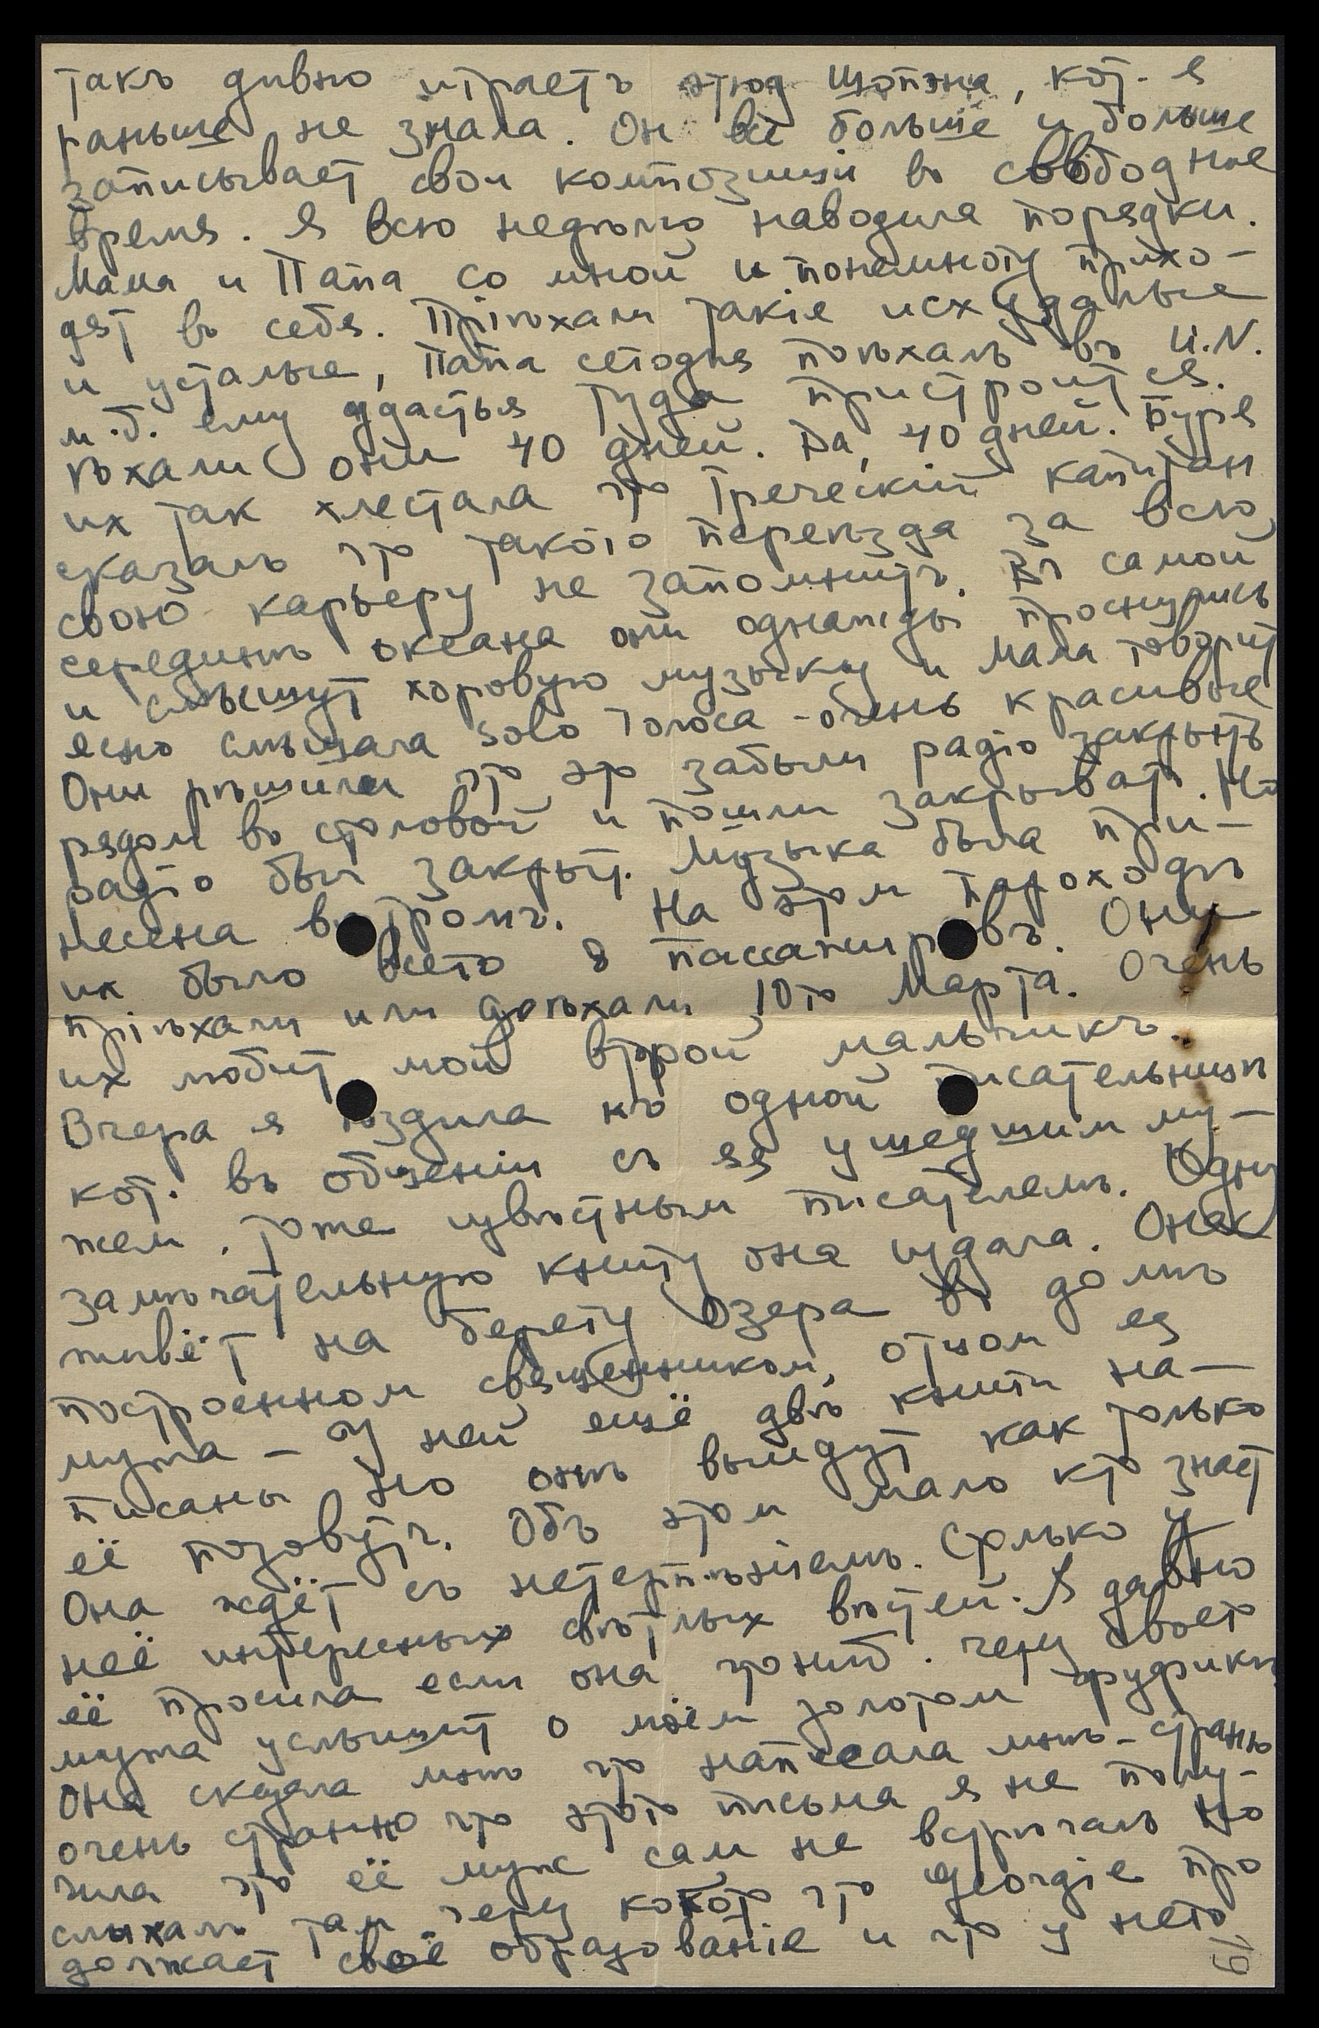 такъ дивно играетъ этюд Шопэна, кот. я
раньше не знала. Он всё больше и больше
записывает свои композицiи въ свободное
время. Я всю недѣлю наводила порядки.
Мама и Папа со мной и понемногу прихо-
дят въ себя. Прiѣхали такiе исхудалые
и усталые, Папа сегодня поѣхалъ въ U.N.
м.б. ему удастья туда пристроится.
ѣхали они 40 дней. Да, 40 дней. Буря
их так хлестала что Греческiй капитан
сказалъ что такого переѣзда за всю
свою карьеру не запомнитъ. Въ самой
серединѣ океана они однажды проснулись
и слышут хоровую музыку и Мама говорит
ясно слышала solo голоса - очень красивые
Они рѣшили что это забыли радiо закрыть
рядом въ столовой и пошли закрывать. Но
радiо был закрыт. Музыка была при-
несена вѣтромъ. На этом пароходѣ
их было всего 8 пассажировъ. Они
прiѣхали или доѣхали 10го Марта. Очень
их любит мой второй мальчикъ.
Вчера я ѣздила къ одной писательницѣ
кот. въ общенiи съ ея ушедшим му-
жем, тоже извѣстным писателемъ. Одну
замѣчательную книгу она издала. Она
живёт на берегу озера въ домѣ
построенном священником, отцом ея
мужа - У ней ещё двѣ книги на-
писаны но онѣ выйдут как только
её позовутъ. Объ этом мало кто знает
Она ждёт съ нетерпѣнiемъ. Столько у
неё интересных свѣтлых вѣстей. Я давно
её просила если она что ниб. чрез своего
мужа услышит о моём золотом Фудрикѣ
Она сказала мнѣ что написала мнѣ - странно
очень странно что этого письма я не полу-
чила что её муж сам не встрѣчалъ но
слыхалъ там через кого то что Georgie про
должает своё образованiе и что у него
19